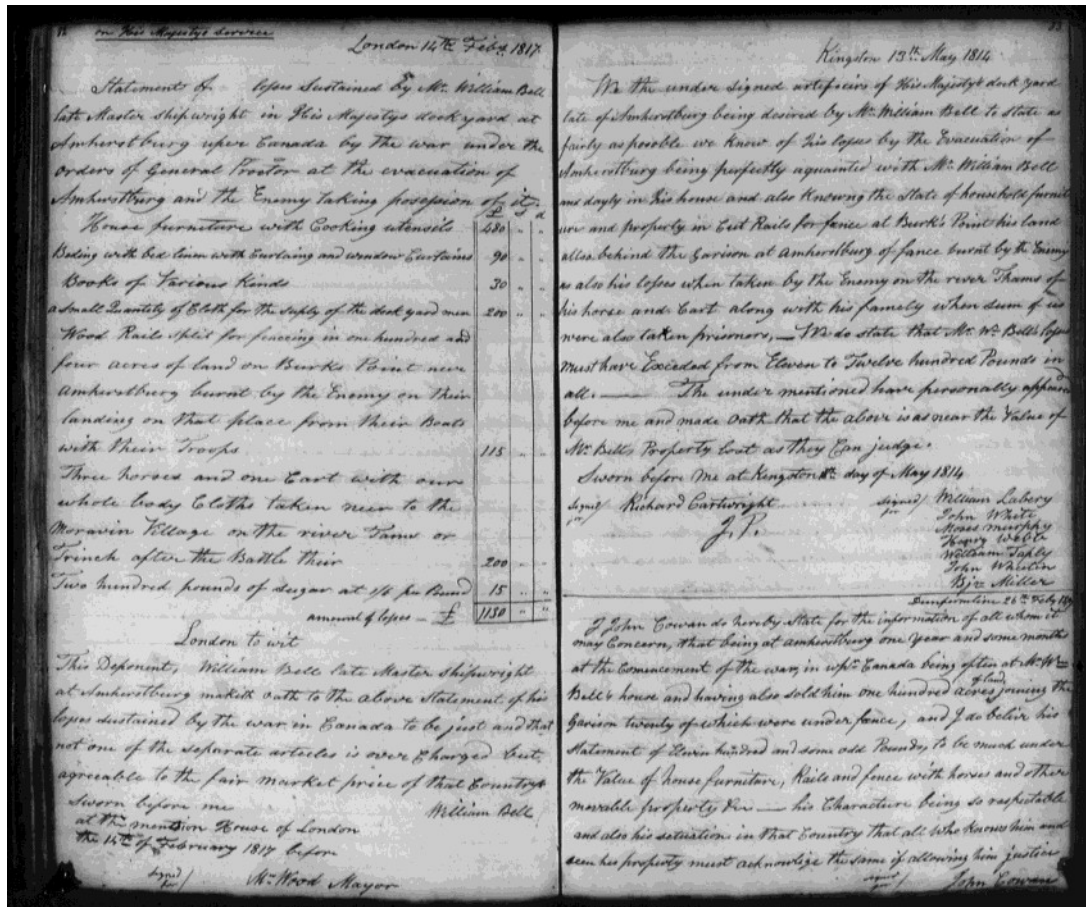 82
on His Majestys Service
London 14th Feby 1817.
Statement of losses Sustained by Mr. William Bell
late Master Shipwright in His Majestys dock yard at
Amherstburg uper Canada by the war under the
orders of General Proctor at the evacuation of
Amherstburg and the Enemy taking posession of it.
£ s d
House furniture with Cooking utensils 480 " "
Beding with bed linen with Curtains and window Curtains 90 " "
Books of Various Kinds 30 " "
a Small Quantity of Cloth for the suply of the dock yard men 200 " "
Wood Rails split for fenceing in one hundred and
four acres of land on Burks Point near
Amherstburg burnt by the Enemy on their
landing on that place from their Boats
with their Troops 115 " "
Three horses and one Cart with our
whole body Cloths taken near to the
Moravin Village on the river Tams or
Trinch after the Battle their 200 " "
Two hundred pounds of Sugar at 1/6 per Pound 15 " "
amount of losses — £ 1130 " "
London to wit
This Deponent, William Bell late Master Shipwright
at Amherstburg makith oath to the above Statement of his
losses sustained by the war in Canada to be just and that
not one of the separate articles is over Charged but
agreeable to the fair market price of that Country
Sworn before me William Bell
at the mention House of London
the 14th of February 1817 before
signed
Mr Wood Mayor
83
Kingston 13th May 1814
We the under signed artificers of His Majestys dock yard
late of Amherstburg being desired by Mr. William Bell to state as
fairly as posible we know of his losses by the Evacuation of
Amherstburg being perfectly aquainted with Mr. William Bell
and dayly in his house and also Knowing the State of household furnit
ure and property in Cut Rails for fance at Burk's Point his land
allso behind the Garison at Amherstburg of fance burnt by the Enemy
as also his losses when taken by the Enemy on the river Thams of
his horse and Cart along with his famely when sum of us
were also taken prisonors, — We do state that Mr. Wm. Bell's losses
must have Exceded from Eleven to Twelve hundred Pounds in
all. — The under mentioned have personally appeared
before me and made Oath that the above is as near the Value of
Mr. Bell's Property lost as they Can judge.
Sworn before me at Kingston day of May 1814
signed Richard Cartwright
J.P.
signed William Labery
John White
Moses Murphy
Henry Webb
William Taply
John Whestin
Bjn Miller
Dunfermline 26th Feby
I John Cowan do hereby State for the information of all whom it
may Concern, that being at Amherstburg one year and some months
at the Comencement of the war, in uppr Canada being often at Mr. Wm.
Bell's house and having also sold him one hundred acres of land joining the
Garison twenty of which were under fance, and I do belive his
Statement of Elevin hundred and some odd Pounds, to be much under
the Value of house furniture, Rails and fence with horses and other
movable property &c — his Characture being so respectable
and also his setuation in that Country that all who knows him and
seen his property must acknowlige the same if allowing him justice
signed John Cowan